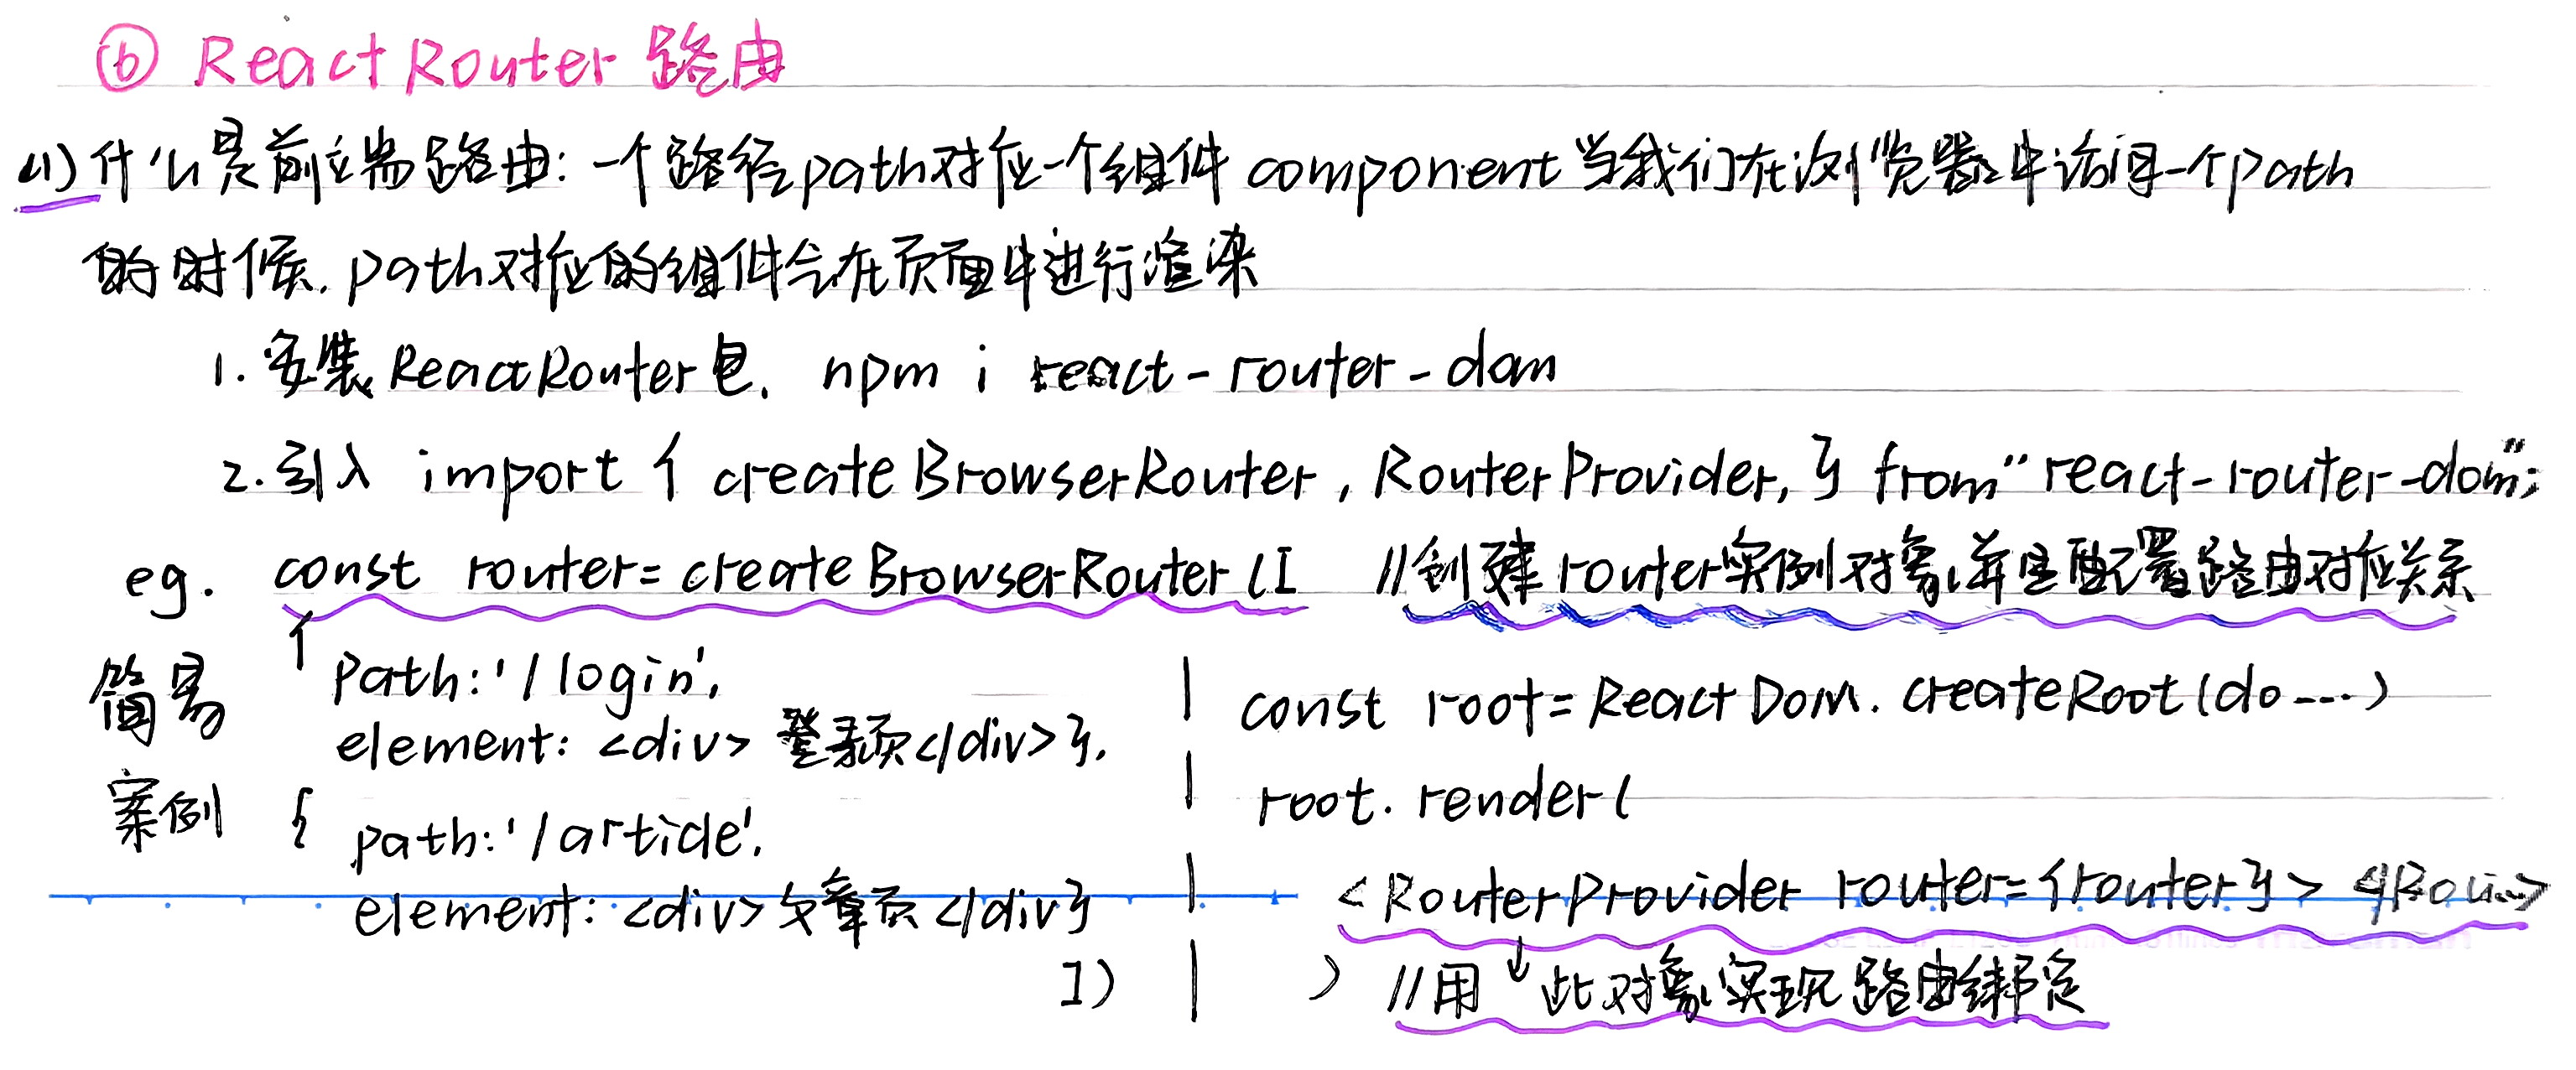 ⑥ React Router 路由
(1) 什么是前端路由: 一个路径path对应一个组件 component 当我们在浏览器中访问一个path
的时候. path对应的组件会在页面中进行渲染
1. 安装 ReactRouter包. npm i react-router-dom
2. 引入 import { createBrowserRouter, RouterProvider, } from "react-router-dom";
eg. const router= createBrowserRouter([ //创建router实例对象并且配置路由对应关系
简易
案例
{
path: '/login',
element: <div> 登录页</div>},
{
path: '/article',
element: <div> 文章页 </div}
])
const root= ReactDom. createRoot(do----)
root. render(
<RouterProvider router={router}> </Rou...>
) //用↓此对象实现路由绑定